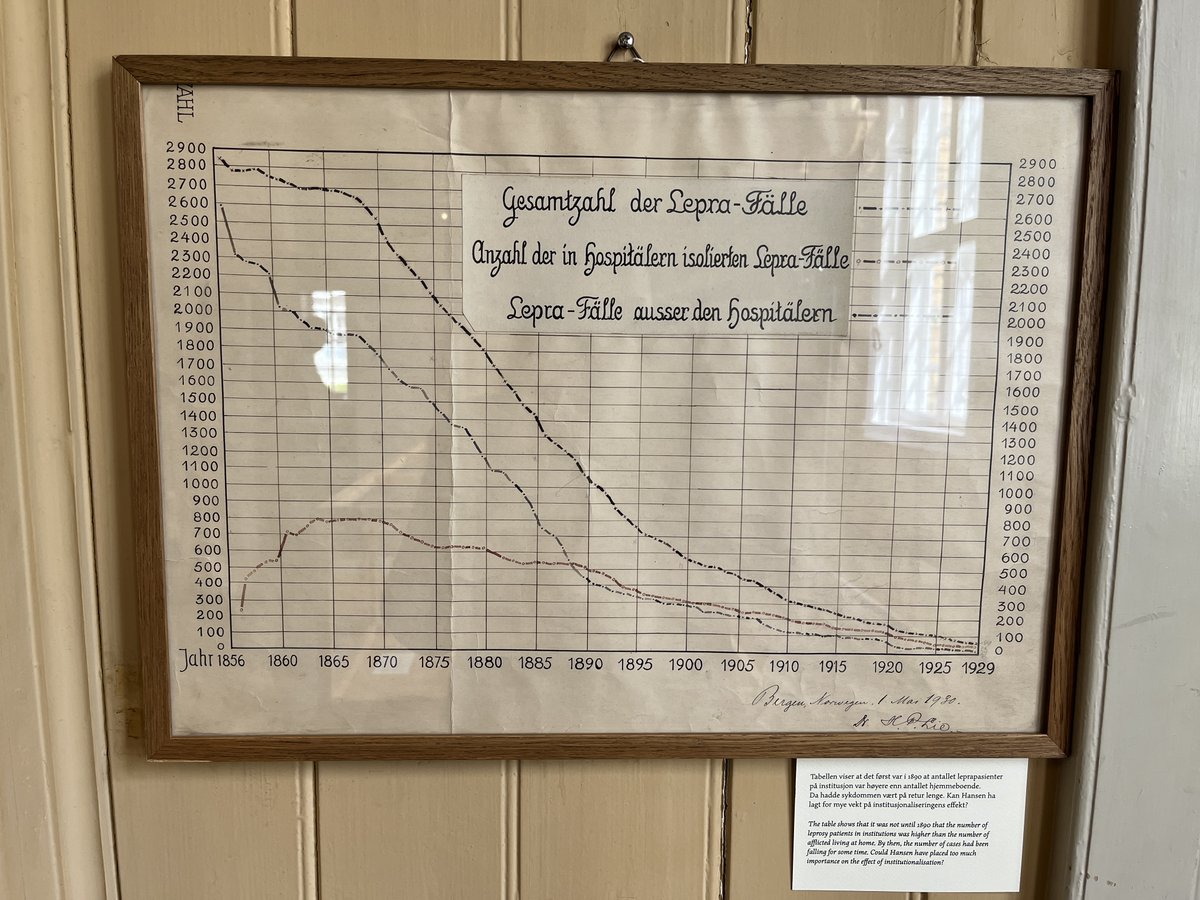 ZAHL
2900
2800
2700
2600
2500
2400
2300
2200
2100
2000
1900
1800
1700
1600
1500
1400
1300
1200
1100
1000
900
800
700
600
500
400
300
200
100
0
Gesamtzahl der Lepra-Fälle
Anzahl der in Hospitälern isolierten Lepra-Fälle
Lepra-Fälle ausser den Hospitälern
2900
2800
2700
2600
2500
2400
2300
2200
2100
2000
1900
1800
1700
1600
1500
1400
1300
1200
1100
1000
900
800
700
600
500
400
300
200
100
0
Jahr 1856 1860 1865 1870 1875 1880 1885 1890 1895 1900 1905 1910 1915 1920 1925 1929
Bergen, Norwegen, 1 Mai 1930.
Dr H. P. Lie.
Tabellen viser at det først var i 1890 at antallet leprapasienter
på institusjon var høyere enn antallet hjemmeboende.
Da hadde sykdommen vært på retur lenge. Kan Hansen ha
lagt for mye vekt på institusjonaliseringens effekt?
The table shows that it was not until 1890 that the number of
leprosy patients in institutions was higher than the number of
afflicted living at home. By then, the number of cases had been
falling for some time. Could Hansen have placed too much
importance on the effect of institutionalisation?